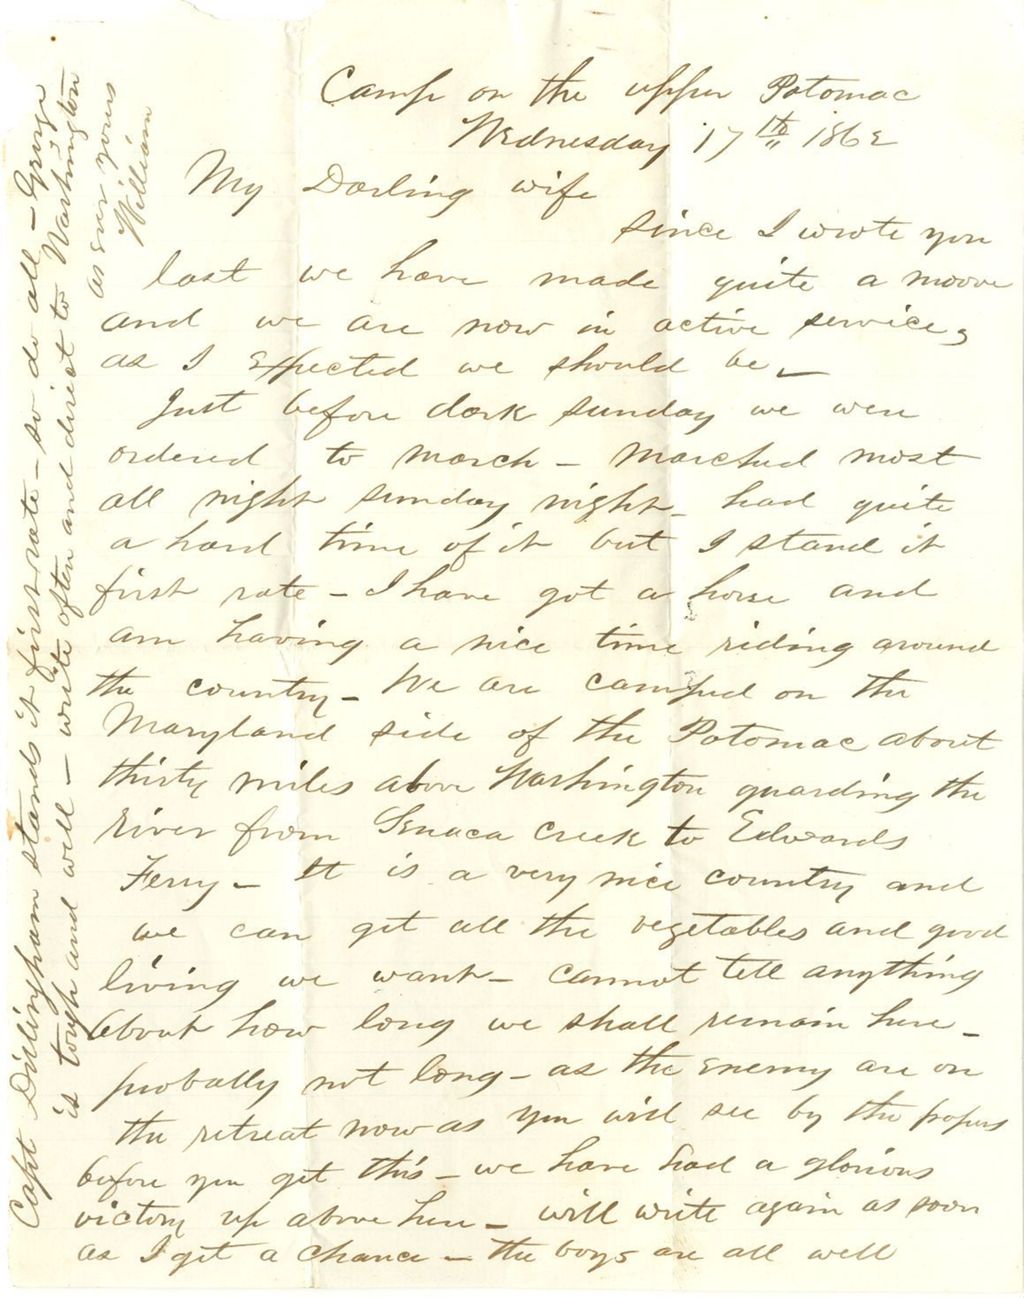 Camp on the upper Potomac
Wednesday 17th 1862
My Darling wife
since I wrote you
last we have made quite a moove
and we are now in active service,
as I expected we should be, –
Just before dark sunday we were
ordered to march – marched most
all night sunday night – had quite
a hard time of it but I stand it
first rate – I have got a horse and
am having a nice time riding around
the country – We are camped on the
Maryland side of the Potomac about
thirty miles above Washington guarding the
river from Senaca Creek to Edwards
Ferry – It is a very nice country and
we can get all the vegetables and good
living we want – cannot tell anything
about how long we shall remain here –
probally not long – as the enemy are on
the retreat now as you will see by the papers
before you get this – we have had a glorious
victory up above here – will write again as soon
as I get a chance – the boys are all well
Capt Dillingham stands it first rate – so do all –
is tough and well – write often and direct to Washington
as ever yours
William